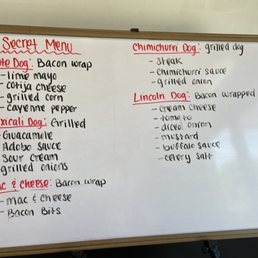 Secret Menu
Dog: Bacon wrap
- lime mayo
- cotija cheese
- grilled corn
- cayenne pepper
Dog: Grilled
Guacamole
Adobo sauce
Sour cream
grilled onions
& Cheese: Bacon wrap
- mac & cheese
- Bacon Bits
Chimichurri Dog: grilled dog
- steak
- Chimichurri sauce
- grilled onion
Lincoln Dog: Bacon wrapped
- cream cheese
- tomato
- diced onion
- mustard
- buffalo sauce
- celery salt